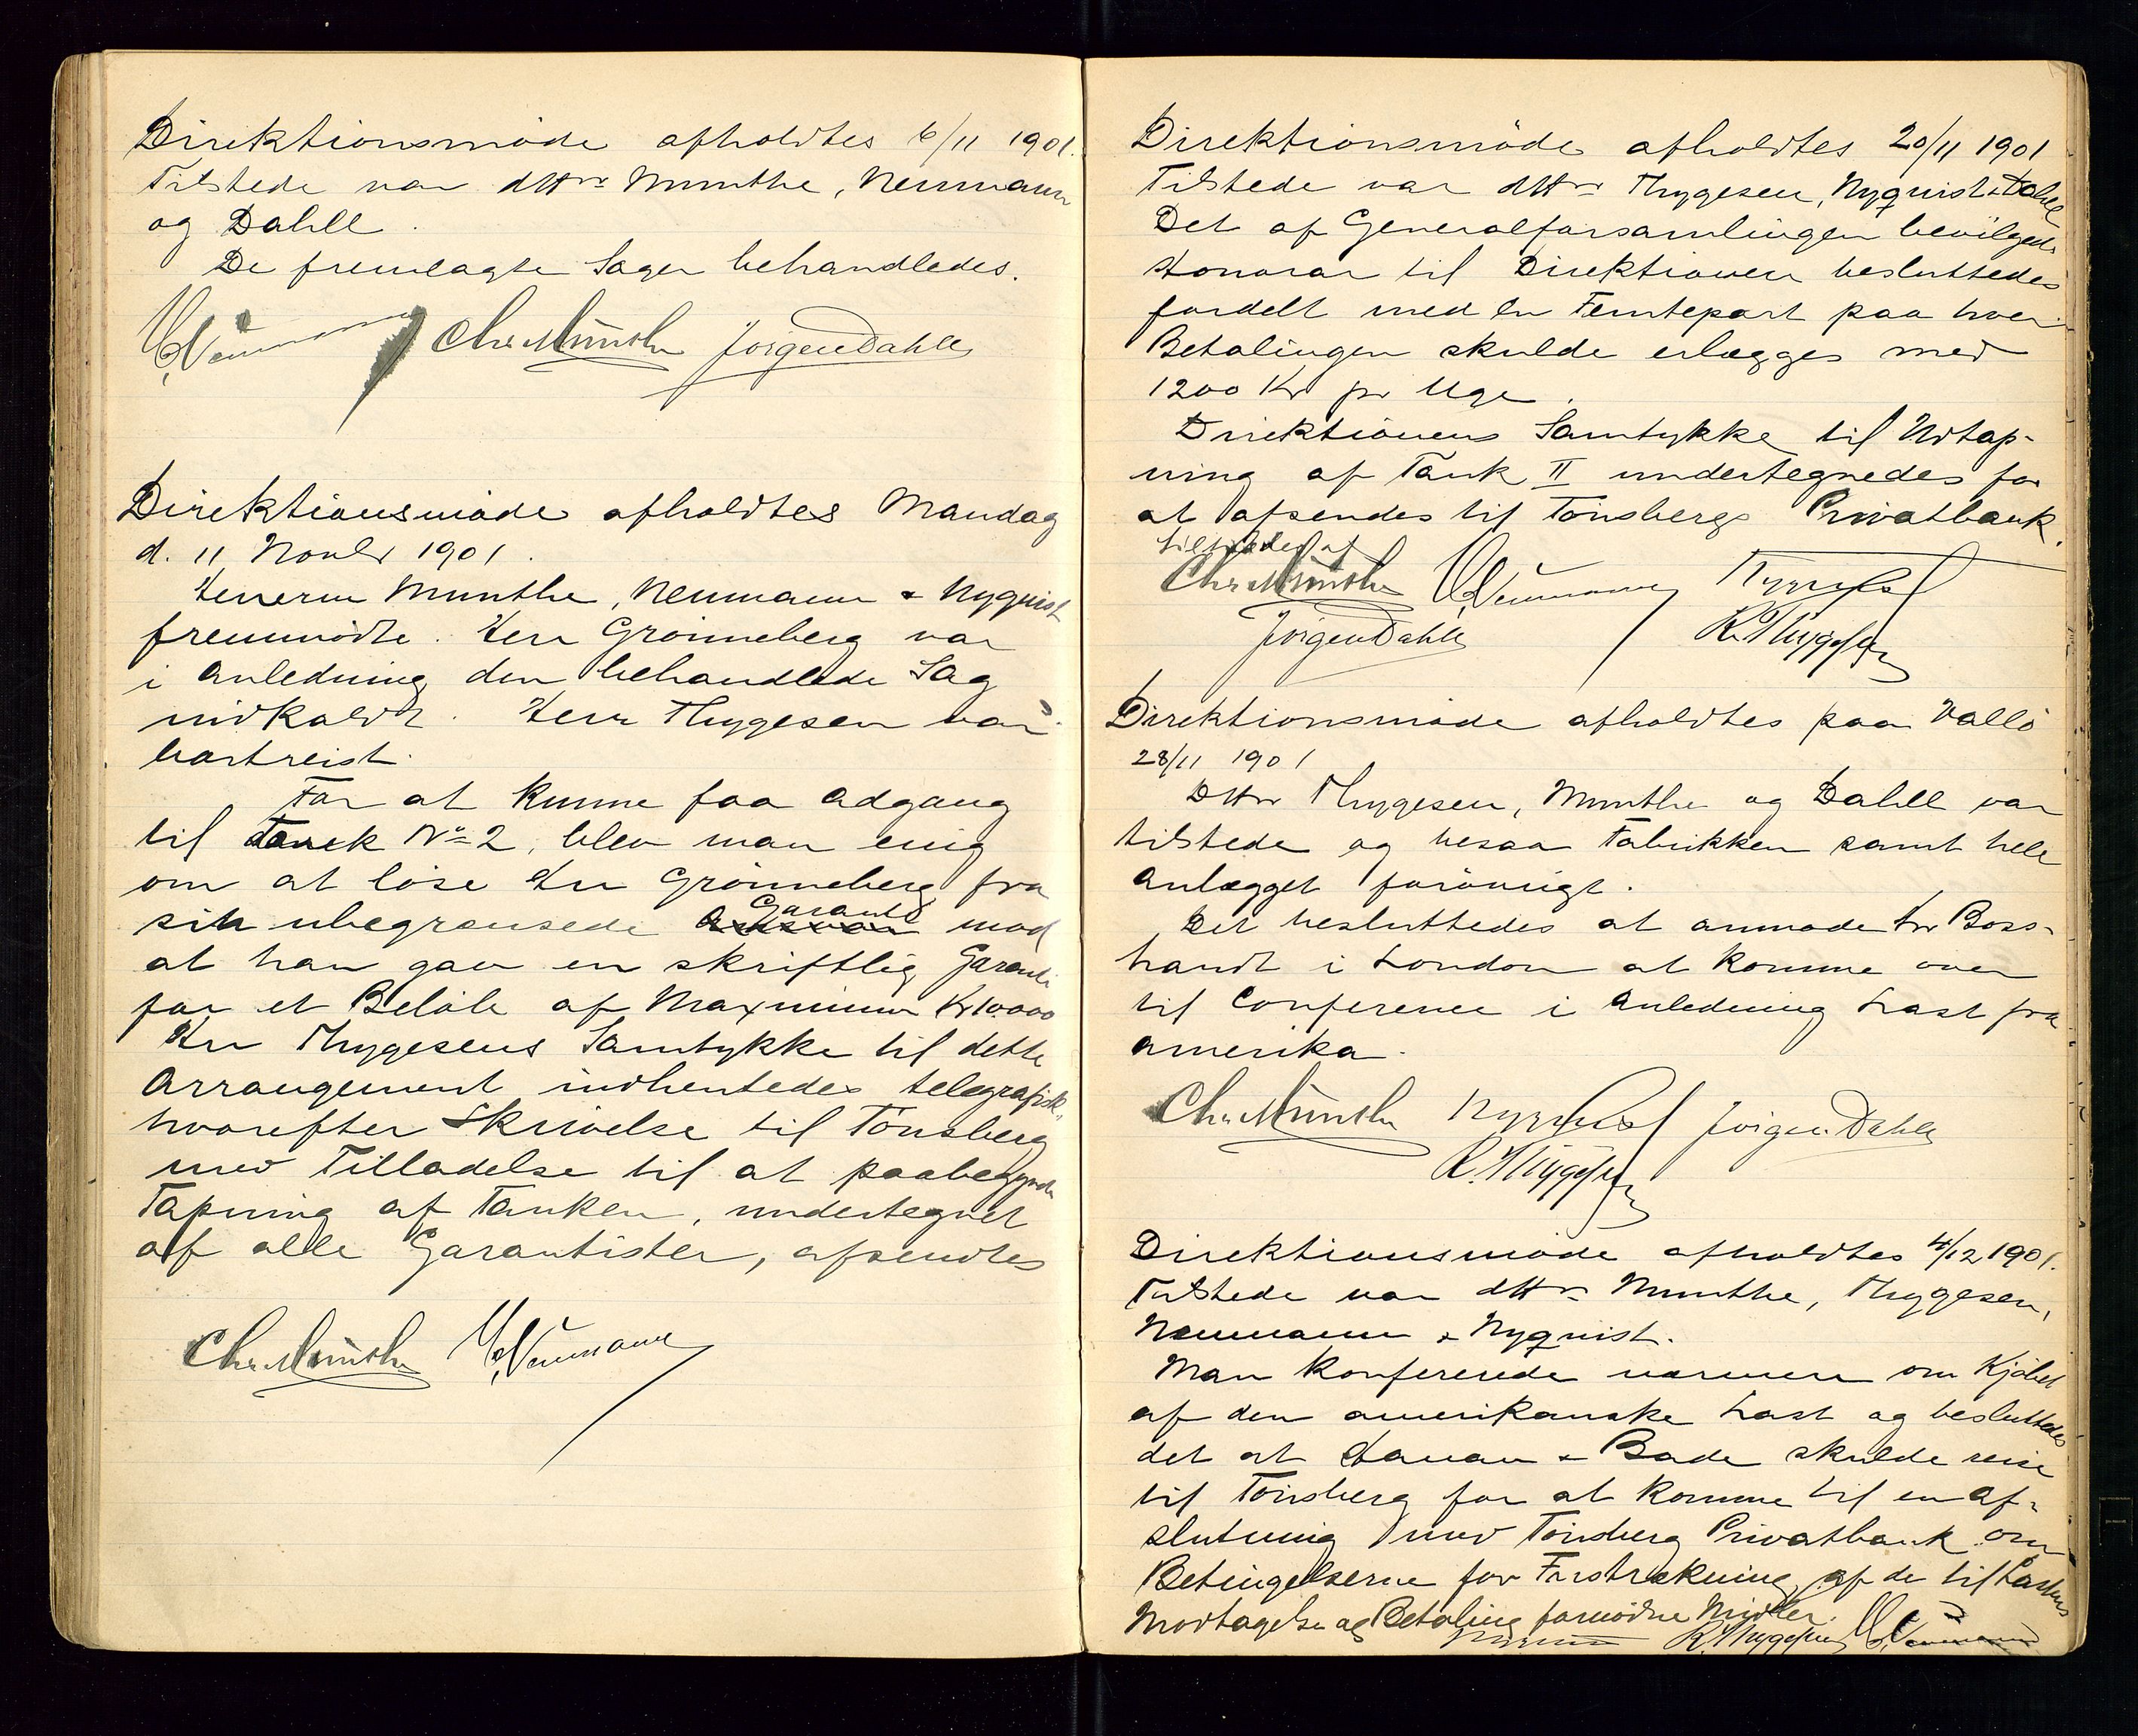 Direktionsmöde afholdtes 6/11 1901.
Tilstede var dHrr Munthe, Neumann
og Dahll.
De fremlagte Sager behandledes.
Neumann Chr. Munthe Jörgen Dahll
Direktionsmöde afholdtes Mandag
d. 11 Novbr 1901.
Herrerne Munthe, Neumann & Nyquist
fremmödte. Herr Grönneberg var
i Anledning den behandlede Sag
indkaldt. Herr Thygesen var
bortreist.
For at kunne faa Adgang
til Tank No 2, blev man enig
om at löse Hr Grönneberg fra
sin ubegrænsede Garanti mod
at han gav en skriftlig Garanti
for et Belöb af Maximum Kr 10000
Hr Thygesens Samtykke til dette
Arrangement indhentedes telegrafisk,
hvorefter Skrivelse til Tönsberg
med Tilladelse til at paabegynde
Tapning af Tanken, undertegnet
af alle Garantister, afsendtes
Chr. Munthe Neumann
Direktionsmöde afholdtes 20/11 1901
Tilstede var dHrr Thygesen, Nyquist & Dahll
Det af Generalforsamlingen bevilgede
Honorar til Direktionen besluttedes
fordelt med en Femtepart paa hver
Betalingen skulde erlægges med
1200 Kr pr Uge.
Direktionens Samtykke til Udtap-
ning af Tank II undertegnedes for
at afsendes til Tönsbergs Privatbank.
tiltrædes af
Chr. Munthe Neumann Nyquist
Jörgen Dahll R. Thygesen
Direktionsmöde afholdtes paa Vallö
28/11 1901
DHrr Thygesen, Munthe og Dahll var
tilstede og besaa Fabrikken samt hele
Anlægget forövrigt.
Det besluttedes at anmode Hr Boss-
hardt i London at komme over
til Conference i Anledning Last fra
Amerika.
Chr. Munthe Nyquist Jörgen Dahll
R. Thygesen
Direktionsmöde afholdtes 4/12 1901.
Tilstede var dHrr Munthe, Thygesen,
Neumann & Nyquist.
Man konfererede nærmere om Kjöbet
af den amerikanske Last og besluttedes
det at & Bade skulde reise
til Tönsberg for at komme til en Af-
slutning med Tönsberg Privatbank om
Betingelserne for Forstrækning af de til Lastens
Modtagelse og Betaling fornödne Midler.
Nyquist R. Thygesen Neumann